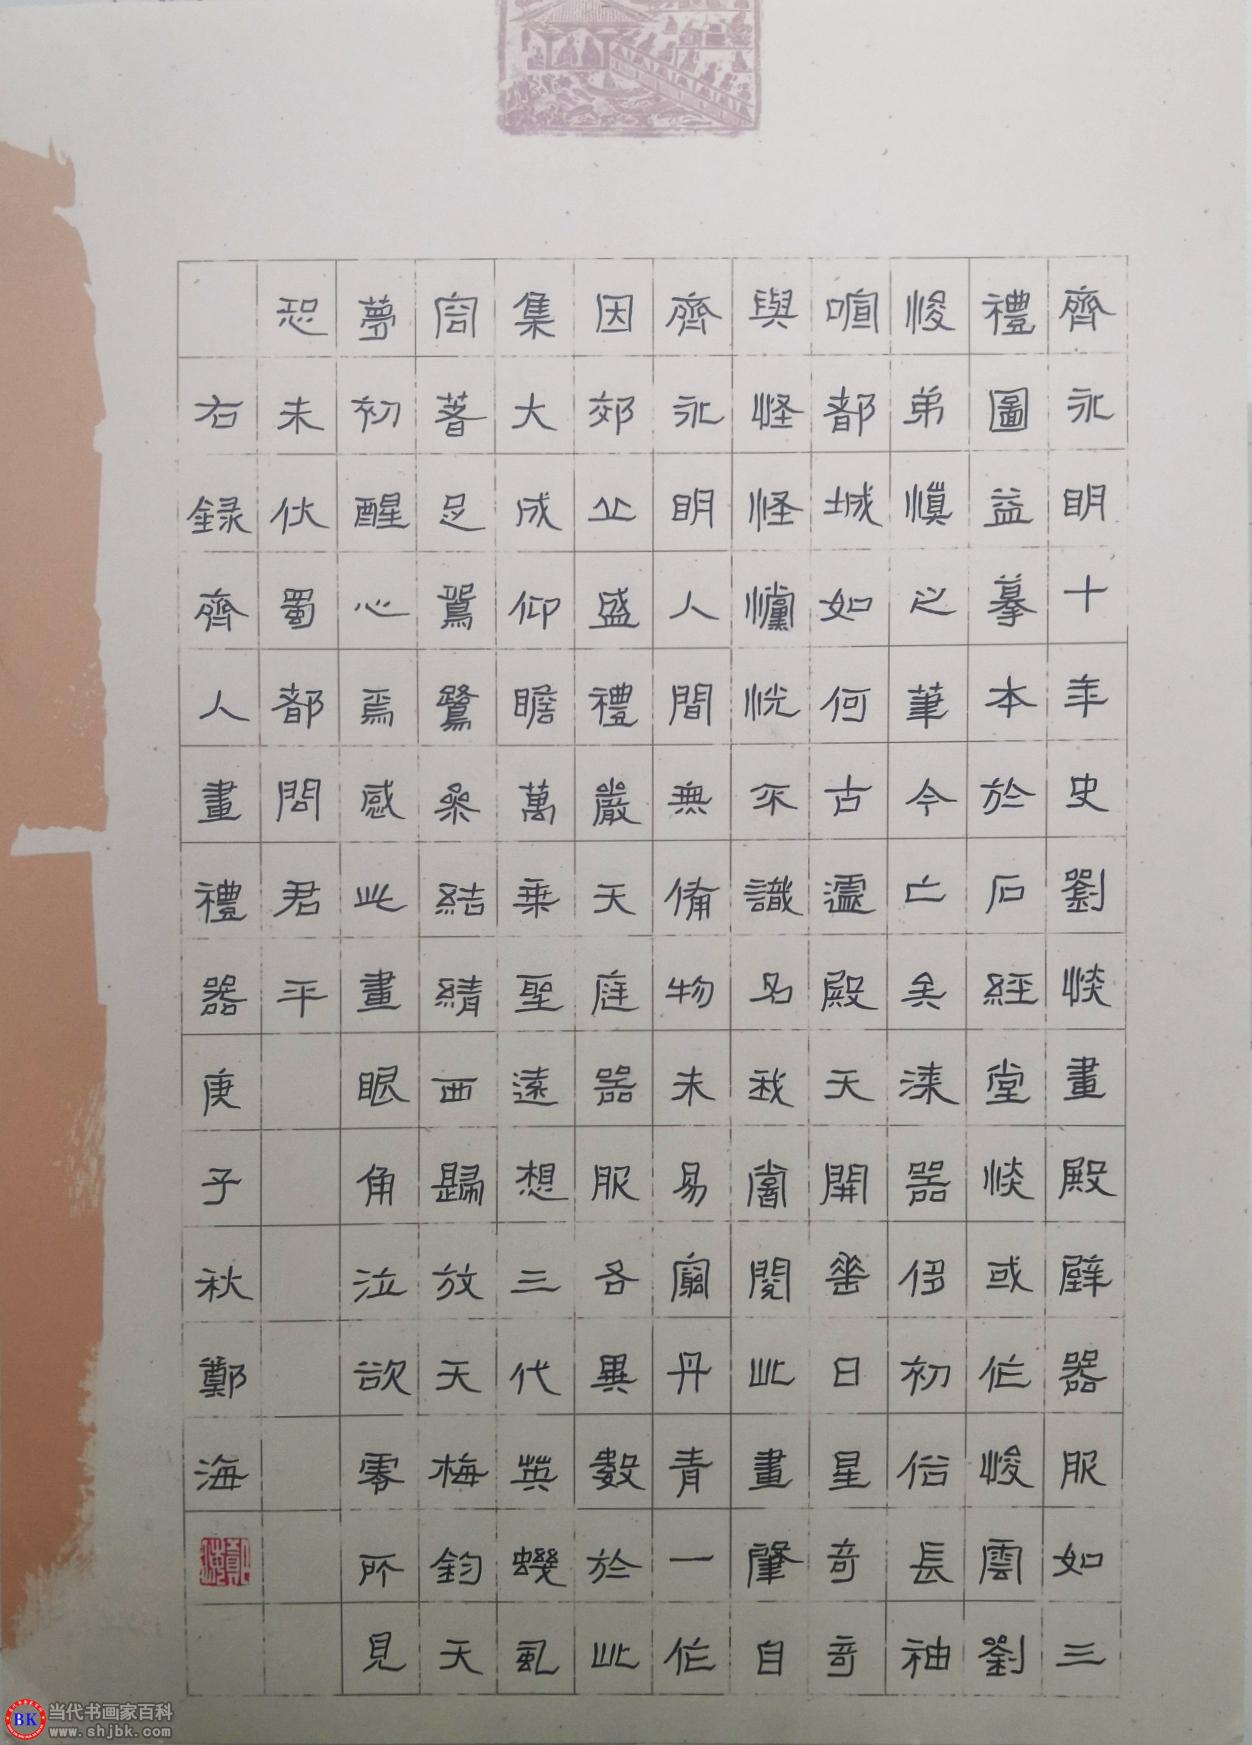 齊永明十年史劉悛畫殿壁器服如三
禮圖益摹本於石經堂悛或作峻雲劉
悛弟慎之筆今亡矣漆器侈初俗長袖
喧都城如何古蘧殿天開華日星奇奇
與怪怪戃恍不識名我嘗閱此畫肇自
齊永明人間無備物未易窮丹青一作
因郊止盛禮嚴天庭器服各異數於此
集大成仰瞻萬乗聖遠想三代英蟣虱
窅著足鴛鷺桑結綪西歸放天梅鈞天
夢初醒心焉感此畫眼角泣欲零所見
恐未伙蜀都問君平
右錄齊人畫禮器庚子秋鄭海
当代书画家百科
www.shjbk.com
BK